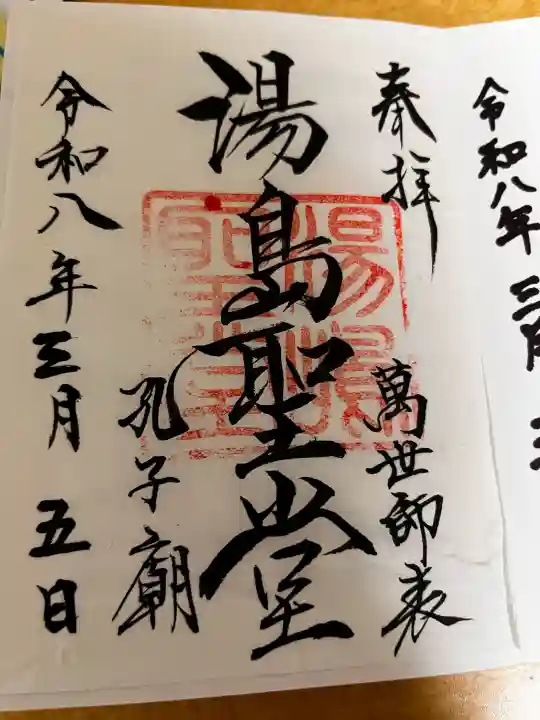 令和八年三月
奉拝
萬世師表
湯島聖堂
湯島聖堂
孔子廟
令和八年三月五日